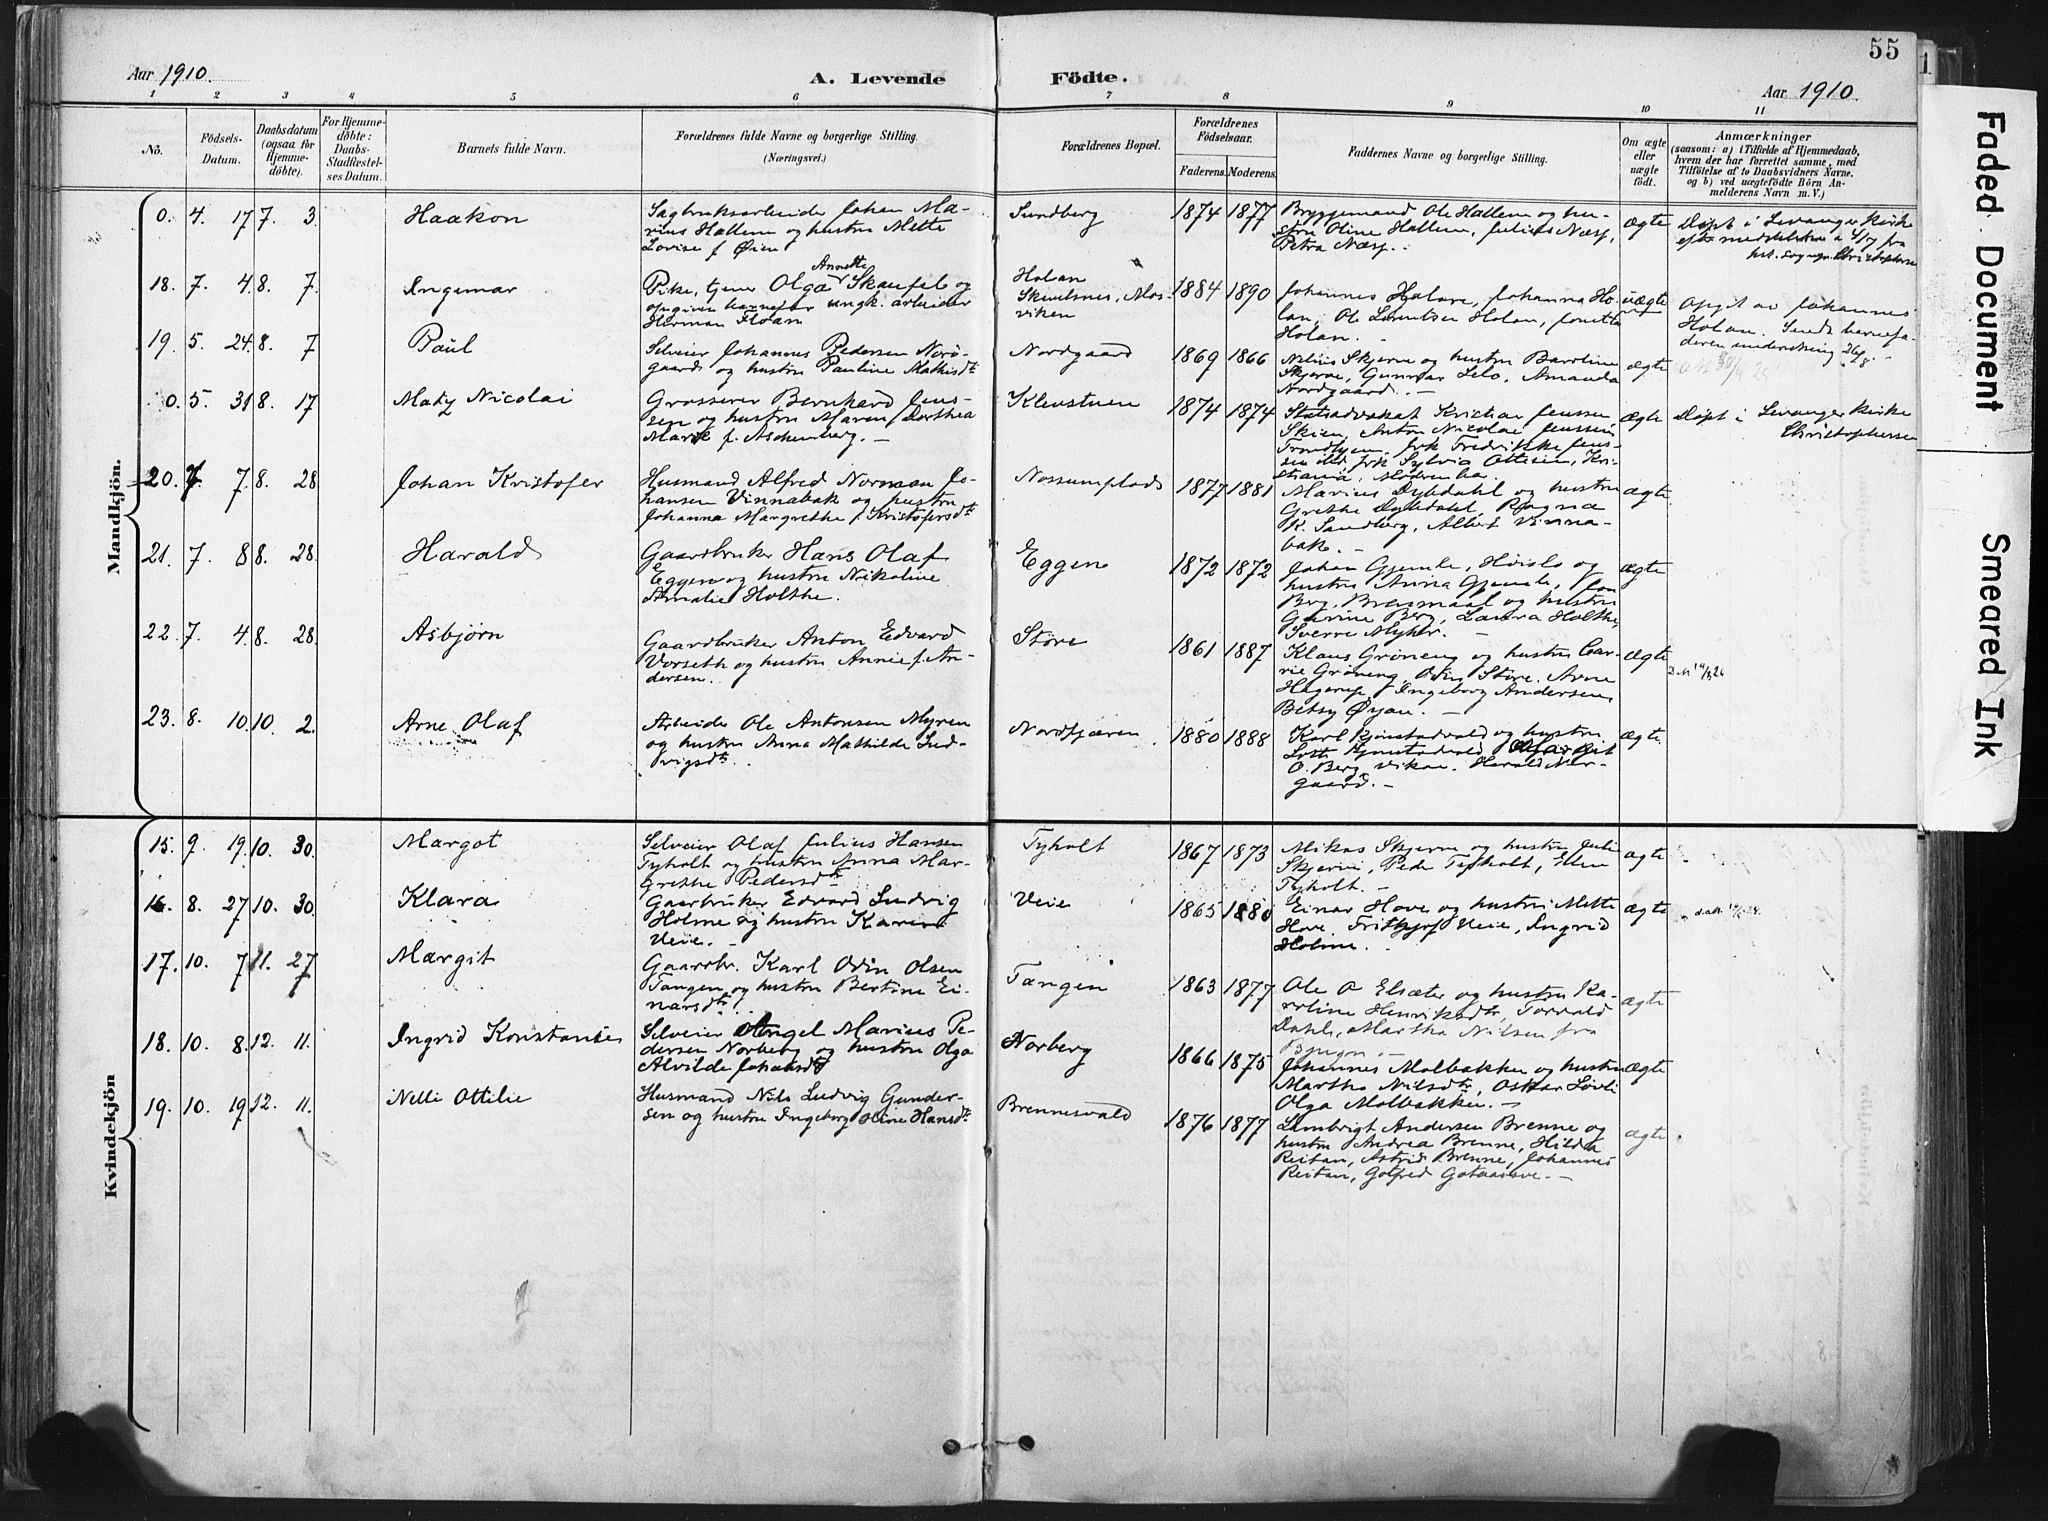 55
Aar 1910.
A. Levende Födte.
Aar 1910
1 2 3 4 5 6 7 8 9 10 11
Nô.
Födsels-
Datum.
Daabsdatum
(ogsaa for
Hjemme-
döbte).
For Hjemme-
döbte:
Daabs-
Stadfæstel-
ses Datum.
Barnets fulde Navn.
Forældrenes fulde Navne og borgerlige Stilling.
(Næringsvei.)
Forældrenes Bopæl.
Forældrenes
Födselsaar.
Faderens. Moderens.
Faddernes Navne og borgerlige Stilling.
Om ægte
eller
uægte
födt.
Anmærkninger
(saasom: a) i Tilfælde af Hjemmedaab,
hvem der har forrettet samme, med
Tilföielse af to Daabsvidners Navne.
og b) ved uægtefödte Börn An-
melderens Navn m. V.)
Mandkjön.
0. 4. 17 7. 3. Haakon
Sagbruksarbeider Johan Ma-
rius Hallem og hustru Mette
Lovise f. Øien
Sundberg
1874 1877
Bryggemand Ole Hallem og hu-
stru Oline Hallem, Julius Næsp,
Petra Næsp.
ægte
Døpt i Levanger kirke
18. 7. 4. 8. 7. Ingemar
Annette
Pike, tjener Olga Skaufel og
opgiven barnefar ungk. arbeider
Herman Floan
Holan
Skjeltnes, Mos-
viken
1884 1890
Johannes Holan, Johanna Ho-
lan, Ole Lorentsen Holan,
Holan.
uægte
Opgit av Johannes
Holan. Sendt barnefa-
deren underretning 26/8.
19. 5. 24. 8. 7 Paul
Selveier Johannes Pedersen Nord-
gaard og hustru Pauline Mathisdtr
Nordgaard
1869 1866
Nelius Skjerve og hustru Baroline
Skjerve, Gunnar Lelo, Amanda
Nordgaard.
ægte
0. 5. 31 8. 17 Nicolai
Grosserer Bernhard Jens-
sen og hustru Maren Dorthea
Marie f. Aschenberg.
Klevstuen
1874 1874
Statsadvokat Kristian Jenssen
Skien, Anton Nicolai Jenssen
Trondhjem, frk Fredrikke Jens-
sen, frk. Sylvia Ottesen, Kri-
stiania,
ægte
Døpt i Levanger Kirke
Christophersen
20. 7. 7. 8. 28 Johan Kristofer
Husmand Alfred Norman Jo-
hansen Vinnabak og hustru
Johanna Margrethe f. Kristofersdtr
Nossumplads
1877 1881
Marius Dybdahl og hustru
Grethe Dybdahl, Ragna
K. Sandberg, Albert Vinna-
bak.
ægte
21. 7. 8 8. 28. Harald
Gaardbruker Hans Olaf
Eggen og hustru Nikoline
Amalie Holthe.
Eggen
1872 1872
Johan Gjemle, Høislo og
hustru Anna Gjemle, Jon
Berg, Brenmaal og hustru
Gurine Berg, Laura Holthe,
Sverre Myhr.
ægte
22. 7. 4 8. 28. Asbjørn
Gaardbruker Anton Edvard
Vorseth og hustru Annie f. An-
dersen.
Støre
1861 1887
Klaus Grøneng og hustru Car-
rie Grøneng, Odin Støre, Arne
Hagerup, Ingeborg Andersen,
Betsy Øyan.
ægte
23. 8. 10. 10. 2. Arne Olaf
Arbeider Ole Antonsen Myren
og hustru Anna Mathilde Lud-
vigsdtr.
Nordfjæren
1880 1888
Karl Rinstadvald og hustru
O. Berg, Viken. Harald Nor-
gaard.
ægte.
Kvindekjön
15. 9. 19. 10. 30. Margot
Selveier Olaf Julius Hansen
Tyholt og hustru Anna Mar-
grethe Pedersdtr
Tyholt
1867 1873
Mikal Skjerve og hustru Julie
Skjerve, Peder Tyholt, Ellen
Tyholt.
ægte
16. 8. 27 10. 30. Klara
Gaarbruker Edvard Ludvig
Holme og hustru Karen
Veie.
Veie
1865 1880
Einar Hove og hustru Mette
Hove, Fritjof Veie, Ingrid
Holme.
ægte
17. 10. 7 11. 27 Margit
Gaardbr. Karl Odin Olsen
Tangen og hustru Bertine Ei-
narsdtr.
Tangen
1863 1877
Ole O Elsæter og hustru Ka-
roline Henriksdtr, Torvald
Dahl, Martha Nilsen fra
Bjugn.
ægte
18. 10. 8. 12. 11. Ingrid Konstanse
Selveier Angel Marius Pe-
dersen Norberg og hustru Olga
Alvilde Johansdtr
Norberg
1866 1875
Johannes Molbakken og hustru
Martha Nilsdtr, Oskar Løvli
Olga Molbakken.
ægte
19. 10. 19 12. 11. Nelli Ottilie
Husmand Nils Ludvig Gunder-
sen og hustru Ingeborg Oline Hansdtr
Brennesvald
1876 1877
Lambrigt Andersen Brenne og
hustru Andrea Brenne, Hilda
Reitan, Astrid Brenne, Johannes
Reitan, Gotfred Gotaasave.
ægte
Faded Document
Smeared Ink